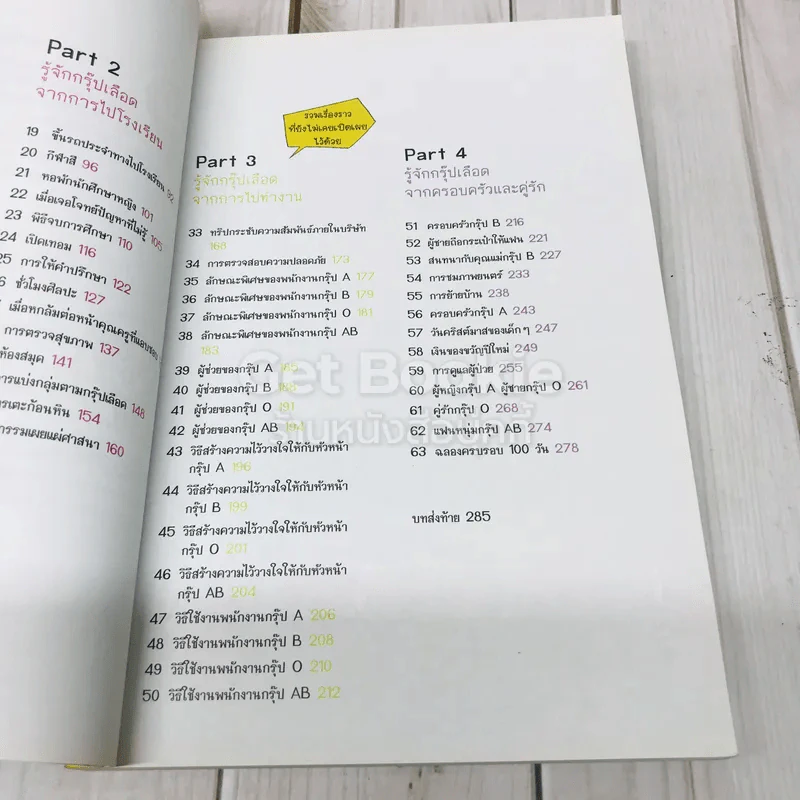 Part 2
รู้จักกรุ๊ปเลือด
จากการไปโรงเรียน
19 ขึ้นรถประจำทางไปโรงเรียน 92
20 กีฬาสี 96
21 หอพักนักศึกษาหญิง 101
22 เมื่อเจอโจทย์ปัญหาที่ไม่รู้ 105
23 พิธีจบการศึกษา 110
24 เปิดเทอม 116
25 การให้คำปรึกษา 122
ชั่วโมงศิลปะ 127
เมื่อหกล้มต่อหน้าคุณครูที่แอบชอบ
การตรวจสุขภาพ 137
ห้องสมุด 141
การแบ่งกลุ่มตามกรุ๊ปเลือด 148
การเตะก้อนหิน 154
กรรมเผยแผ่ศาสนา 160
รวมเรื่องราว
ที่ยังไม่เคยเปิดเผย
ไว้ด้วย
Part 3
รู้จักกรุ๊ปเลือด
จากการไปทำงาน
33 ทริปกระชับความสัมพันธ์ภายในบริษัท
168
34 การตรวจสอบความปลอดภัย 173
35 ลักษณะพิเศษของพนักงานกรุ๊ป A 177
36 ลักษณะพิเศษของพนักงานกรุ๊ป B 179
37 ลักษณะพิเศษของพนักงานกรุ๊ป O 181
38 ลักษณะพิเศษของพนักงานกรุ๊ป AB
183
39 ผู้ช่วยของกรุ๊ป A 185
40 ผู้ช่วยของกรุ๊ป B
41 ผู้ช่วยของกรุ๊ป O 191
42 ผู้ช่วยของกรุ๊ป AB 194
43 วิธีสร้างความไว้วางใจให้กับหัวหน้า
กรุ๊ป A 196
44 วิธีสร้างความไว้วางใจให้กับหัวหน้า
กรุ๊ป B 199
45 วิธีสร้างความไว้วางใจให้กับหัวหน้า
กรุ๊ป O 201
46 วิธีสร้างความไว้วางใจให้กับหัวหน้า
กรุ๊ป AB 204
47 วิธีใช้งานพนักงานกรุ๊ป A 206
48 วิธีใช้งานพนักงานกรุ๊ป B 208
49 วิธีใช้งานพนักงานกรุ๊ป O 210
50 วิธีใช้งานพนักงานกรุ๊ป AB 212
Part 4
รู้จักกรุ๊ปเลือด
จากครอบครัวและคู่รัก
51 ครอบครัวกรุ๊ป B 216
52 ผู้ชายถือกระเป๋าให้แฟน 221
53 สนทนากับคุณแม่กรุ๊ป B 227
54 การชมภาพยนตร์ 233
55 การย้ายบ้าน 238
56 ครอบครัวกรุ๊ป A 243
57 วันคริสต์มาสของเด็กๆ 247
58 เงินของขวัญปีใหม่ 249
59 การดูแลผู้ป่วย 255
60 ผู้หญิงกรุ๊ป A ผู้ชายกรุ๊ป O 261
61 คู่รักกรุ๊ป O 268
62 แฟนหนุ่มกรุ๊ป AB 274
63 ฉลองครบรอบ 100 วัน 278
บทส่งท้าย 285
Get Bookie
ร้านหนังสือบุ๊กกี้